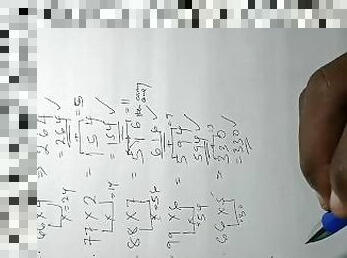 66 × 4 ⇒ 264 ✓
x=24 = 264
77 × 2 = 154 ✓
x=14 = 154 ✓
88 × 7 = 616 ✓
x=56
99 × 6 = 594 ✓
=54 594
66 × 5 = 330
=30 = 330 ✓